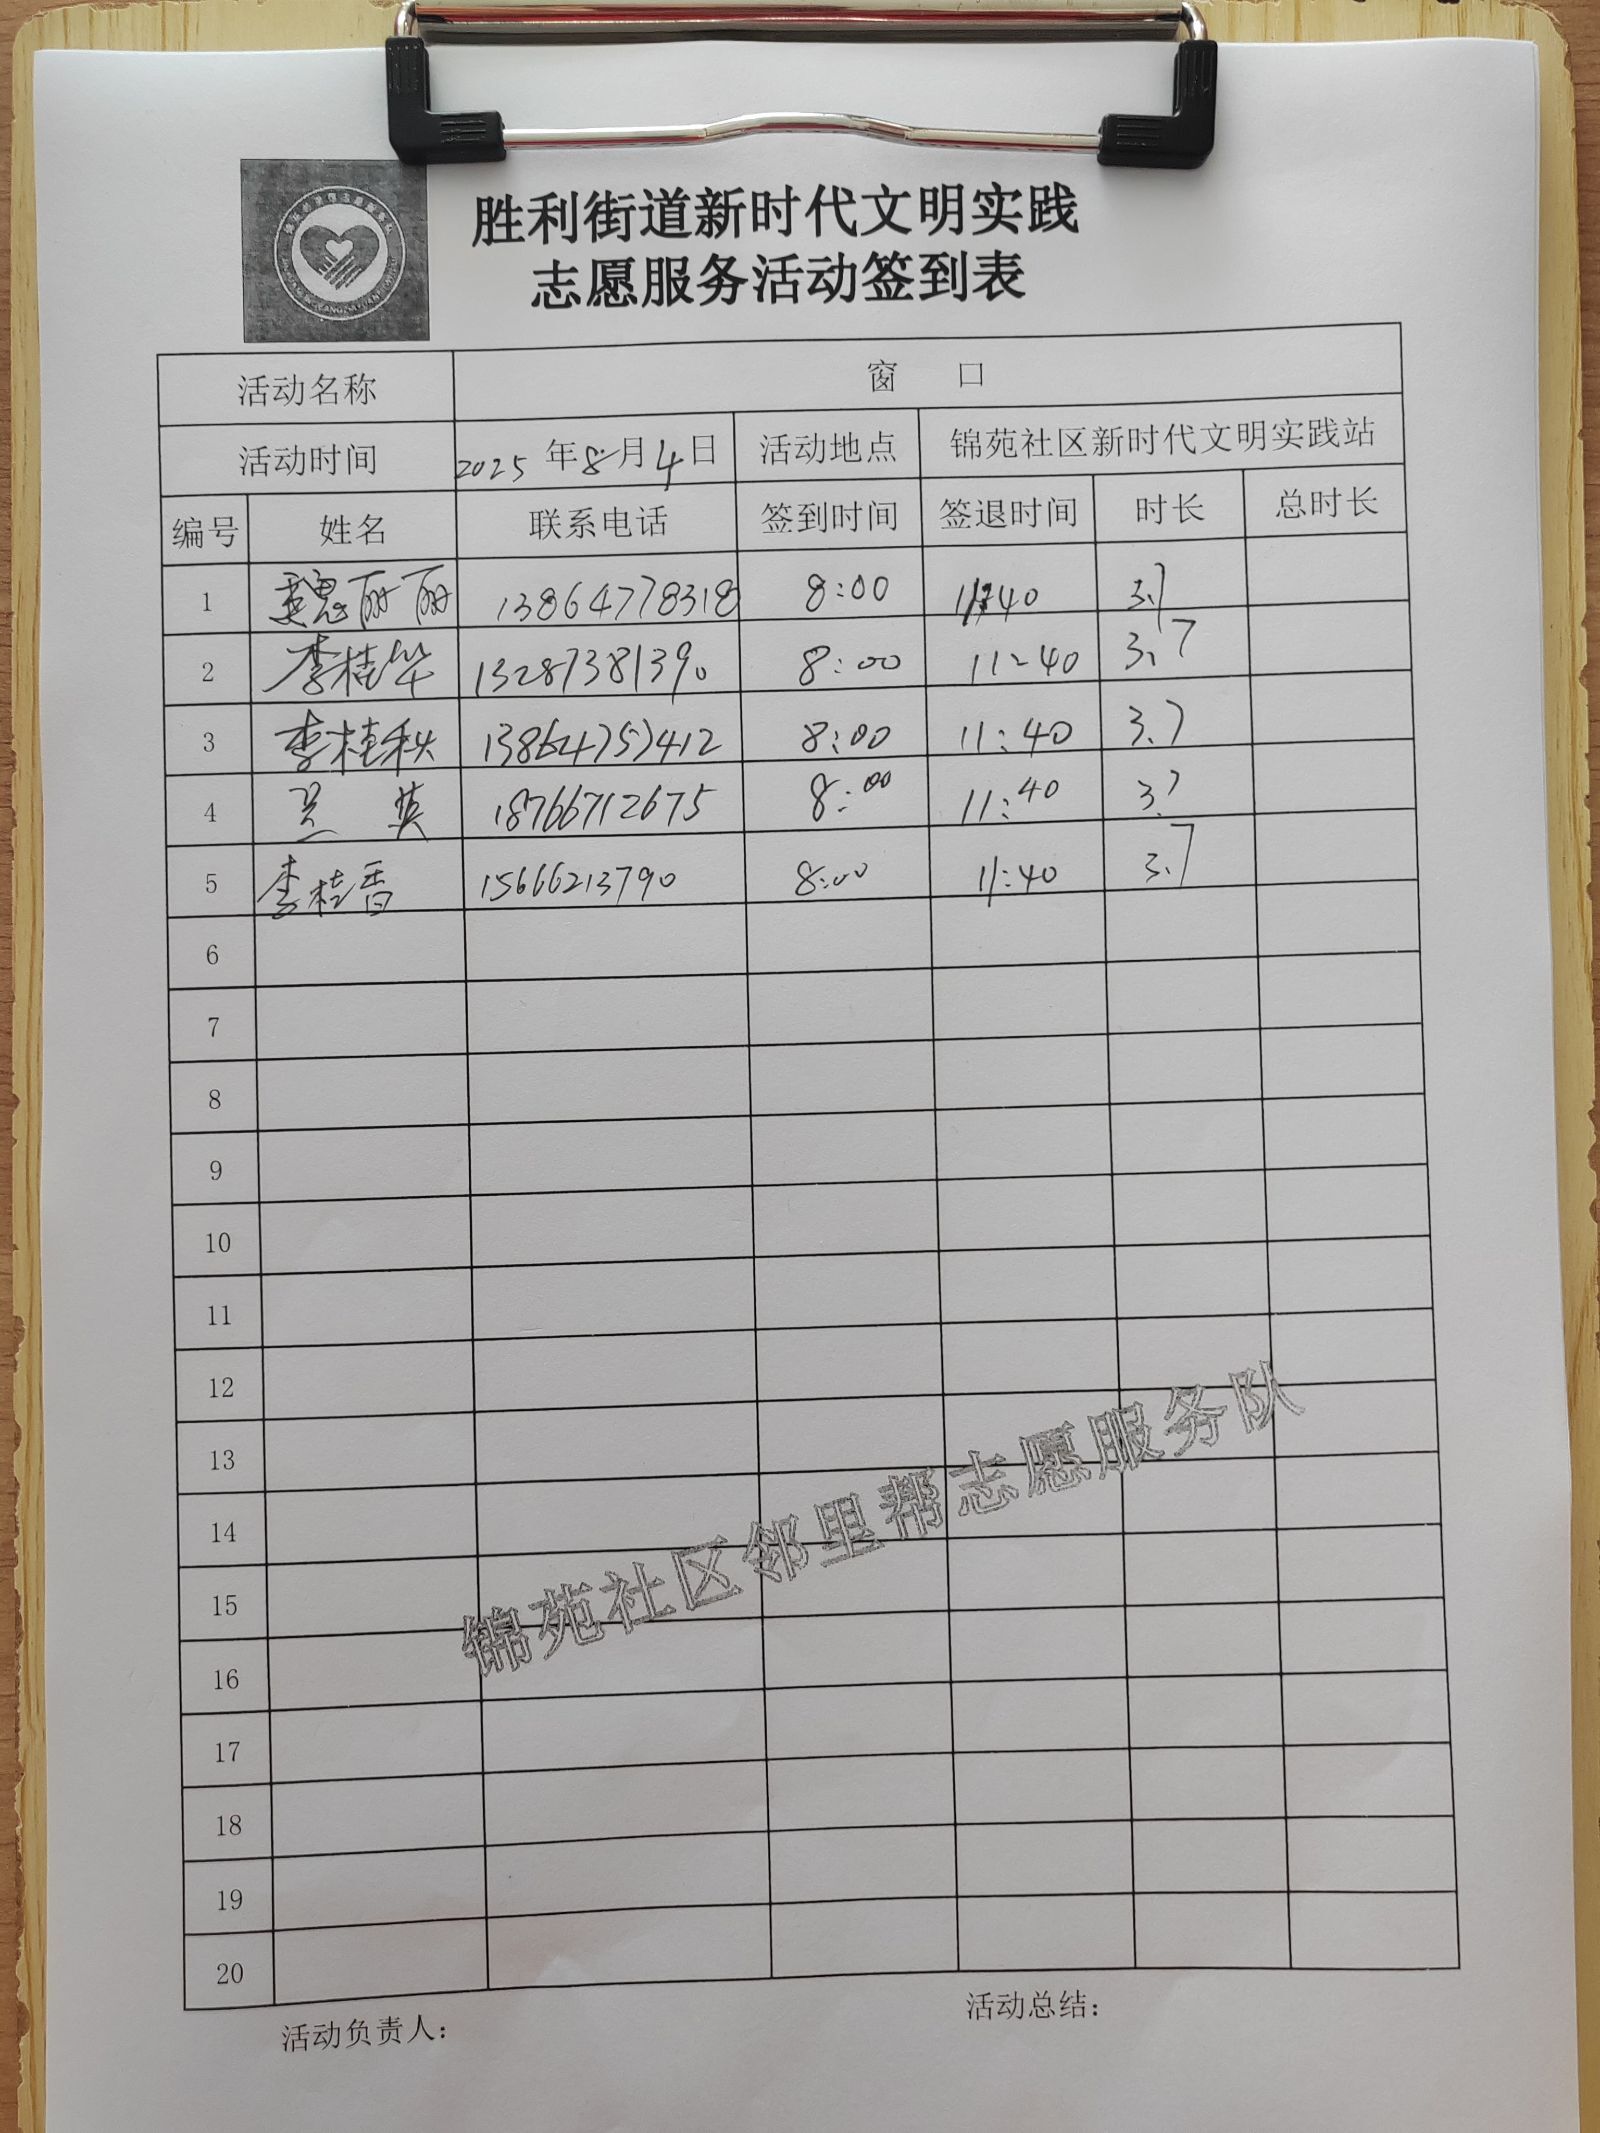 胜利街道新时代文明实践
志愿服务活动签到表
活动名称 窗 口
活动时间 2025 年 8 月 4 日 活动地点 锦苑社区新时代文明实践站
编号 姓名 联系电话 签到时间 签退时间 时长 总时长
1 魏丽丽 13864778318 8:00 11:40 3.7
2 李桂华 13287381390 8:00 11:40 3.7
3 李桂秋 13864757412 8:00 11:40 3.7
4 兰英 18766712675 8:00 11:40 3.7
5 李桂香 15666213790 8:00 11:40 3.7
6
7
8
9
10
11
12
13
14
15
16
17
18
19
20
锦苑社区邻里帮志愿服务队
活动负责人：
活动总结：